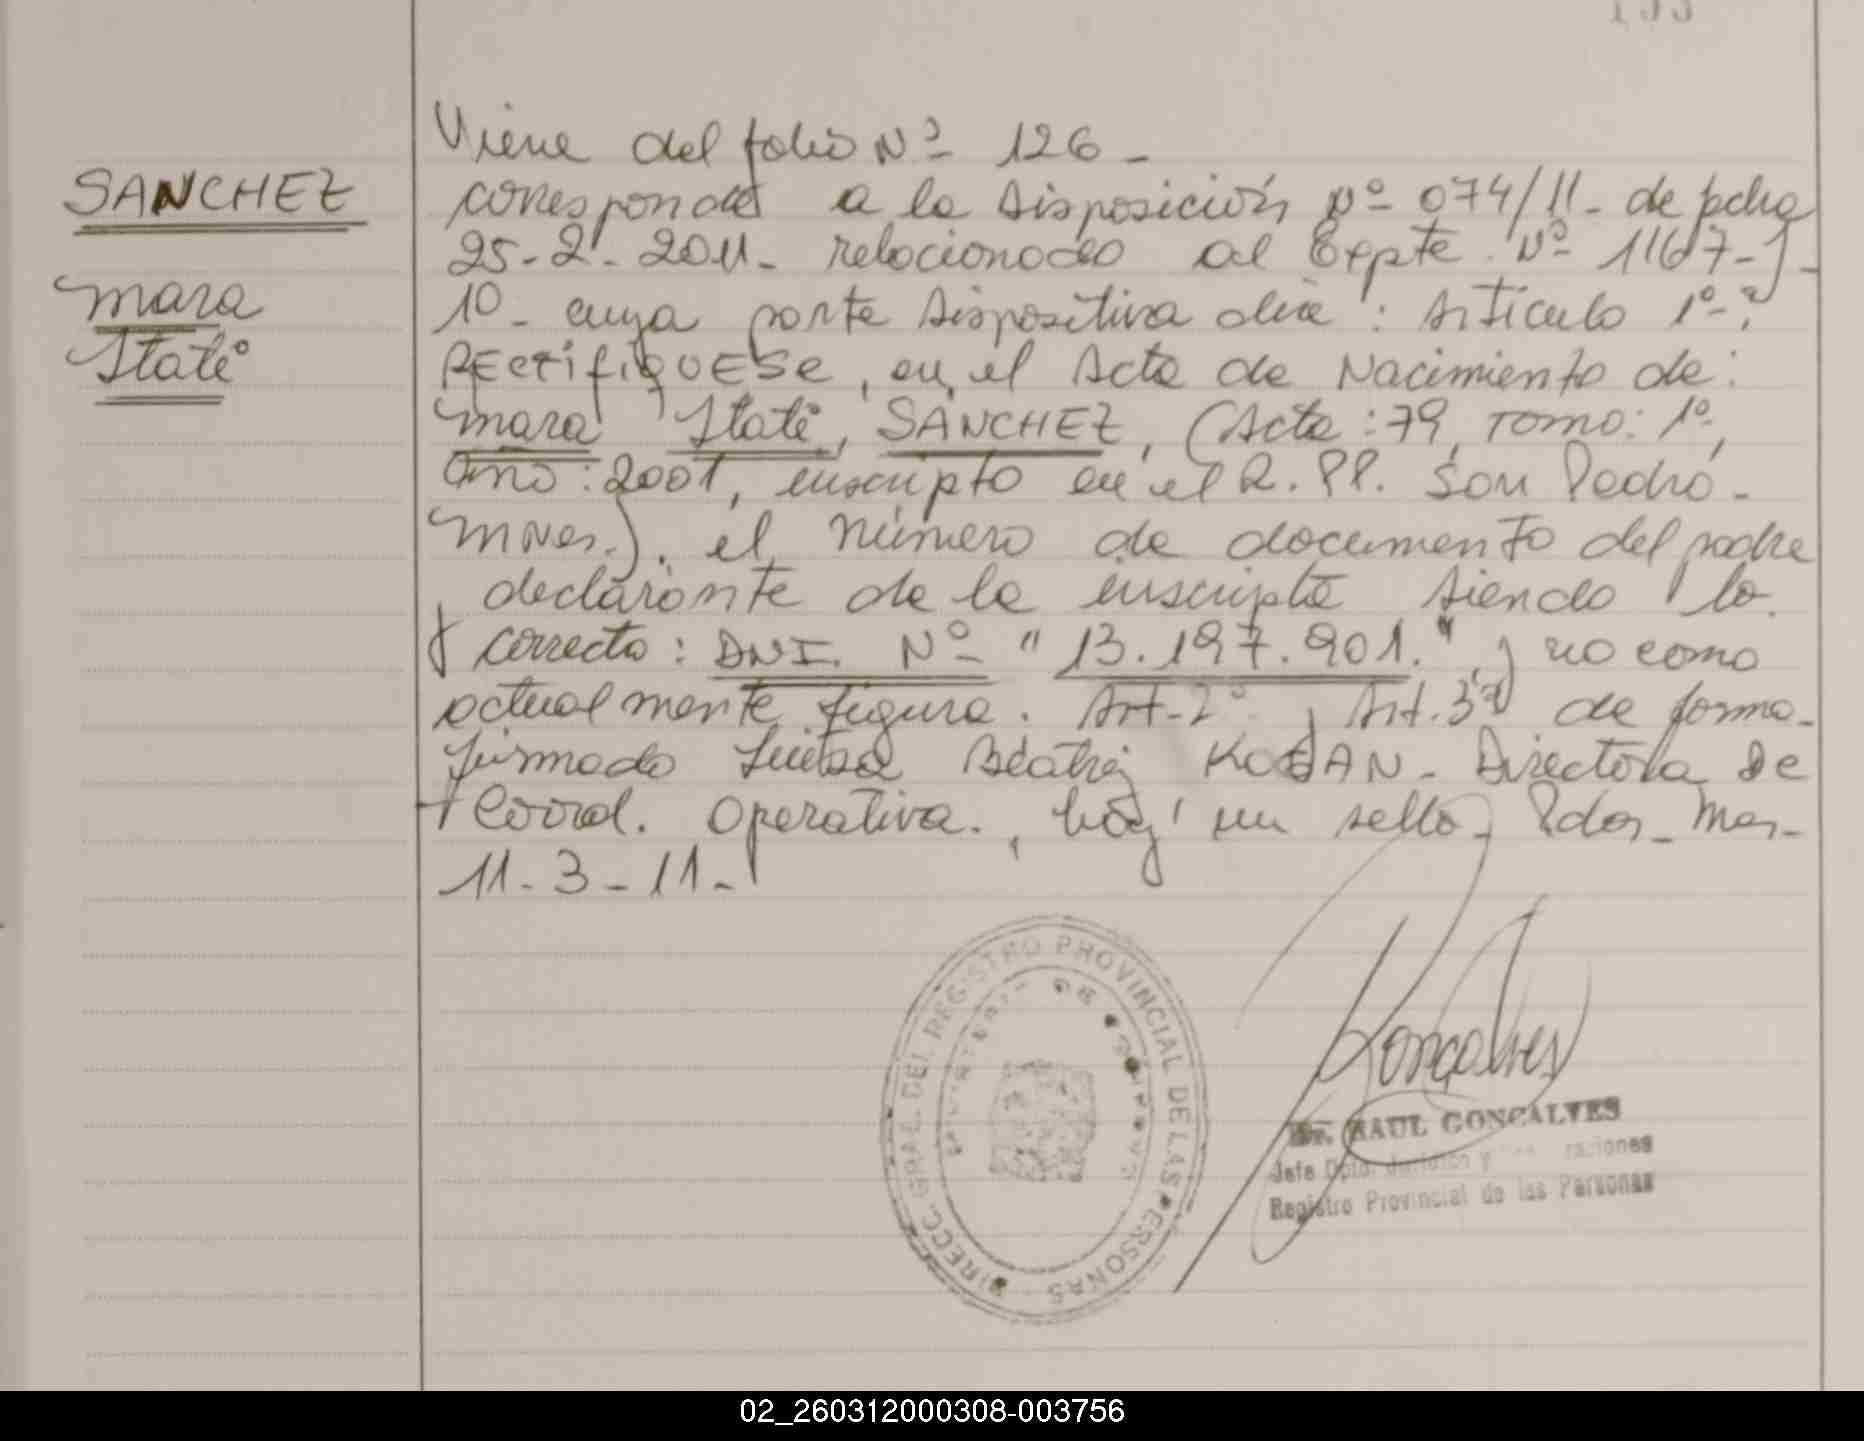 SANCHEZ
Mara
Itatí
Viene del folio Nº 126 -
corresponde a la Disposición Nº 074/11- de fecha
25-2-2011- relacionado al Expte. Nº 1167-J-
10- cuya parte Dispositiva dice: Artículo 1º-:
RECTIFIQUESE, en el Acta de Nacimiento de:
Mara Itatí, SANCHEZ, (Acta: 79, Tomo: 1º,
Año: 2001, inscripto en el R.PP. San Pedro-
MNes.). el Número de documento del padre
declarante de la inscripta siendo lo
correcto: DNI. Nº "13.197.901." y no como
actualmente figura. Art-2º y Art.3º de forma-
firmado Luisa Beatriz Directora De
Coord. Operativa., hay un sello- Pdas- Mns-
11-3-11-
DIRECC. GRAL. DEL REGISTRO PROVINCIAL DE LAS PERSONAS
Gonçalves
Dr. RAUL GONCALVES
Jefe Dpto. y
Registro Provincial de las Personas
02_260312000308-003756